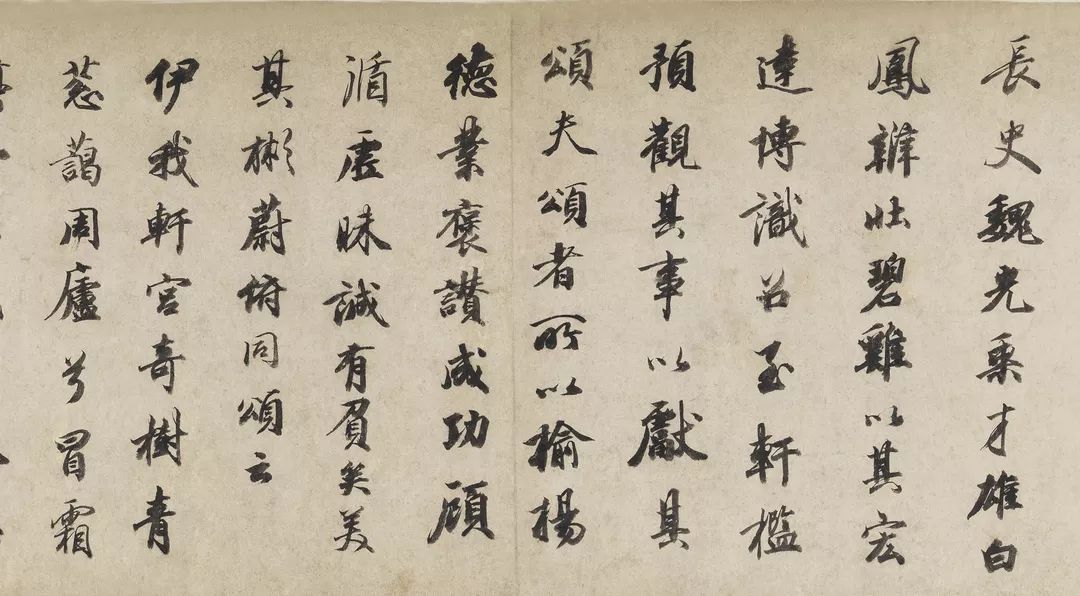 長史魏光乘才雄白
鳳辯壯碧雞以其宏
達博識召至軒檻
預觀其事以獻其
頌夫頌者所以揄揚
德業褒讚成功顧
循虛昧誠有負矣美
其彬蔚俯同頌云
伊我軒宮奇樹青
葱蔼周廬兮冒霜